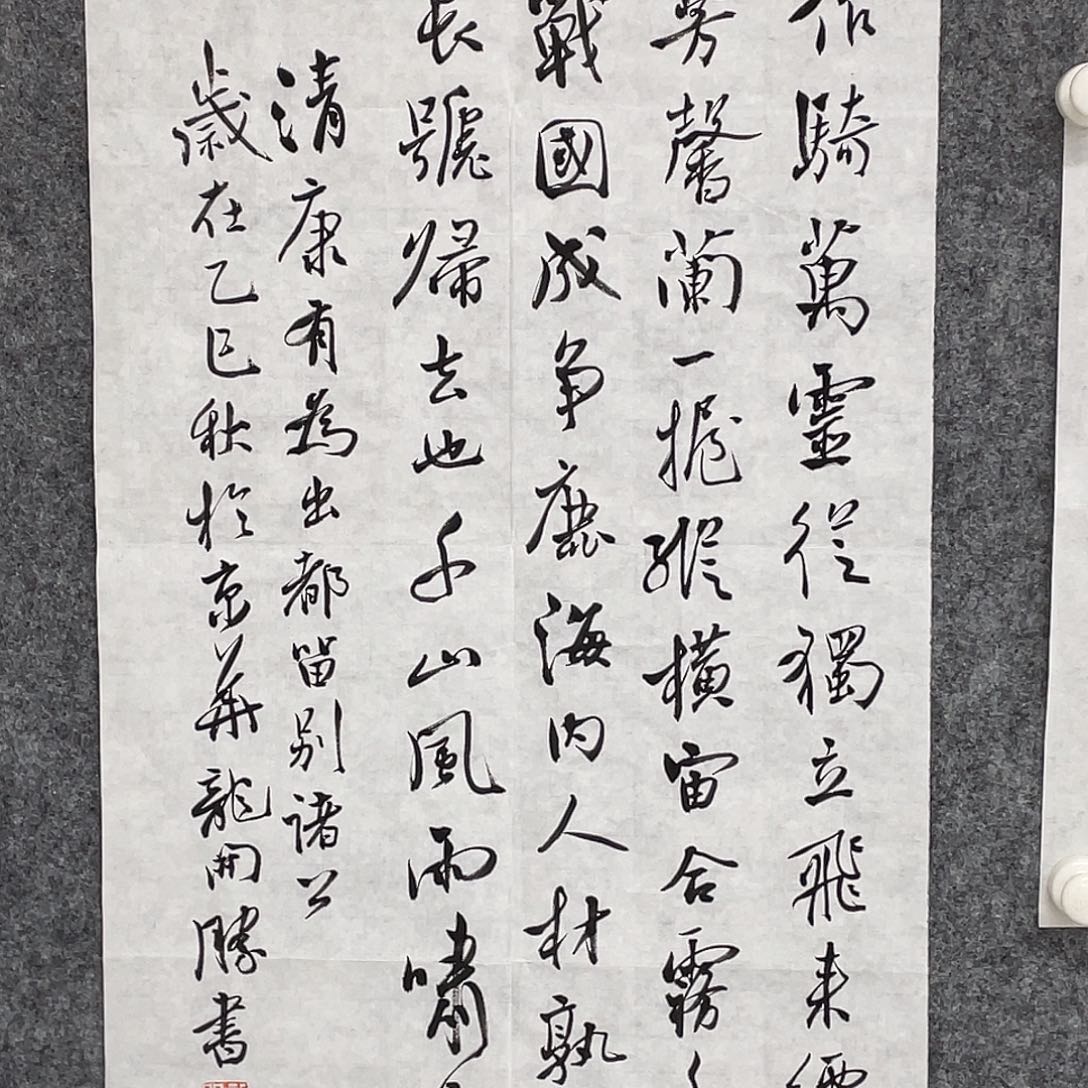 作騎萬靈從獨立飛來縹
芳馨蘭一握縱橫宙合霧
戰國成爭鹿海內人材孰
長號歸去也千山風雨嘯
清康有為出都留别諸公
歲在乙巳秋於京華龍開勝書